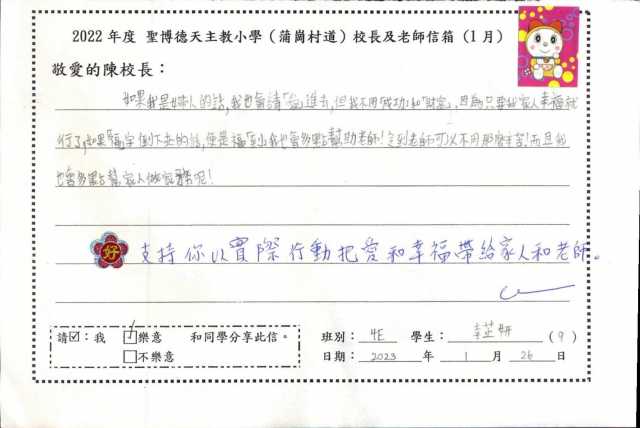 2022 年度 聖博德天主教小學（蒲崗村道）校長及老師信箱（1 月）
敬愛的陳校長：
如果我是婦人的話，我也會請「愛」進去，但我不用「成功」和「財富」，因為只要我家人幸福就
行了，如果「福」字倒下來的話，便是福到，我也會多點幫助老師！令到老師可以不用那麼辛苦！而且我
也會多點幫家人做家務呢！
好 支持你以實際行動把愛和幸福帶給家人和老師。
請☑：我 ☑樂意 和同學分享此信。
□不樂意
班別： 4E 學生： 妍 ( 9 )
日期： 2023 年 1 月 26 日